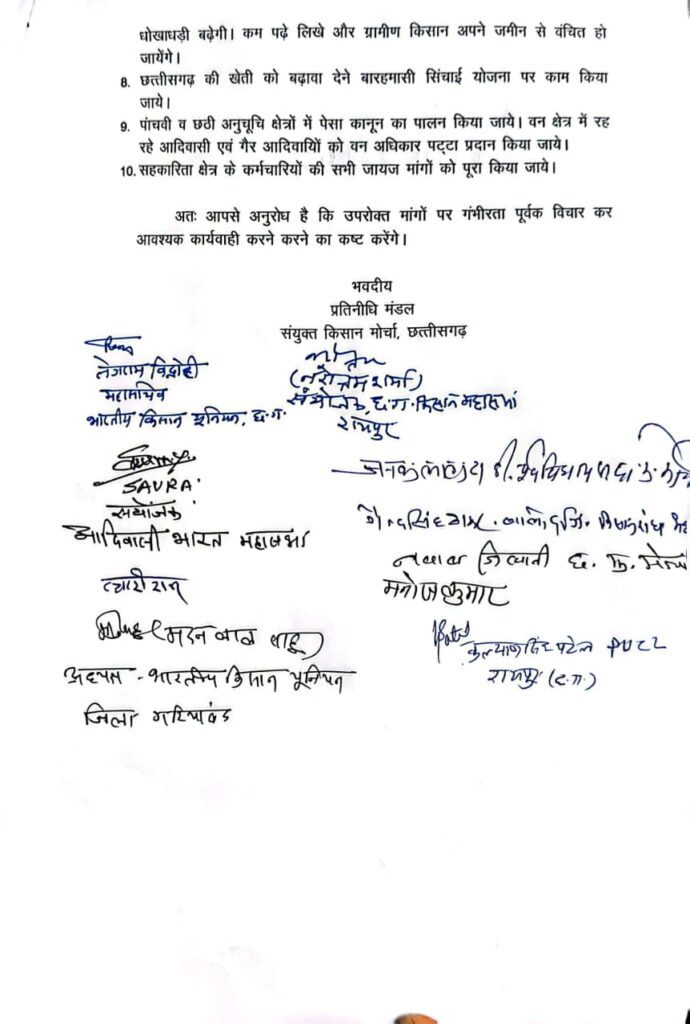 धोखाधड़ी बढ़ेगी। कम पढ़े लिखे और ग्रामीण किसान अपने जमीन से वंचित हो
जायेंगे।
8. छत्तीसगढ़ की खेती को बढ़ावा देने बारहमासी सिंचाई योजना पर काम किया
जाये।
9. पांचवी व छठी अनुचूचि क्षेत्रों में पेसा कानून का पालन किया जाये। वन क्षेत्र में रह
रहे आदिवासी एवं गैर आदिवायिों को वन अधिकार पट्टा प्रदान किया जाये।
10. सहकारिता क्षेत्र के कर्मचारियों की सभी जायज मांगों को पूरा किया जाये।
अतः आपसे अनुरोध है कि उपरोक्त मांगों पर गंभीरता पूर्वक विचार कर
आवश्यक कार्यवाही करने करने का कष्ट करेंगे।
भवदीय
प्रतिनीधि मंडल
संयुक्त किसान मोर्चा, छत्तीसगढ़
तेजराम विद्रोही
महासचिव
भारतीय किसान यूनियन, छ.ग.
(नरोत्तम शर्मा)
संयोजक, छ.ग. किसान महासभा
रायपुर
SAURA
संयोजक
आदिवासी भारत महासभा
मनोज कुमार
(मदन लाल साहू)
अध्यक्ष - भारतीय किसान यूनियन
जिला गरियाबंद
पटेल PUCL
रायपुर (छ.ग.)